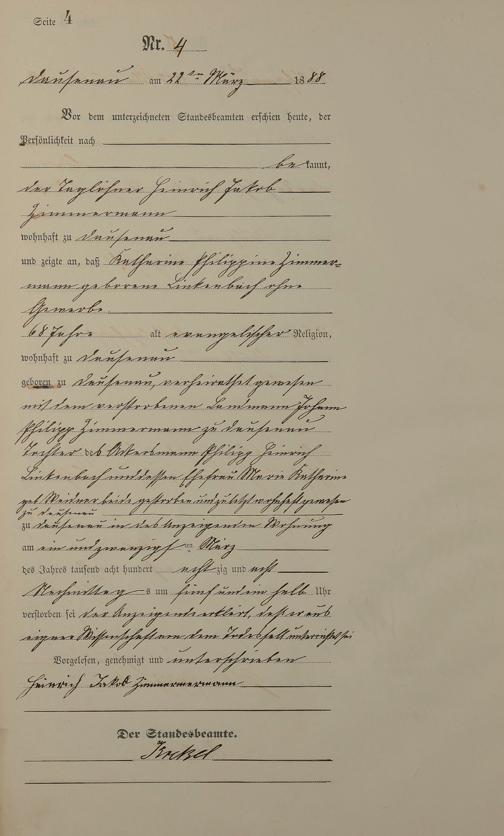 Seite 4
Nr. 4
Dausenau am 22ten März 1888
Vor dem unterzeichneten Standesbeamten erschien heute, der
Persönlichkeit nach
bekannt,
der Taglöhner Heinrich Jakob
Zimmermann
wohnhaft zu Dausenau
und zeigte an, daß Katharine Philippine Zimmer-
mann geborene Linkenbach ohne
Gewerbe
68 Jahre alt evangelischer Religion,
wohnhaft zu Dausenau
geboren zu Dausenau, verheirathet gewesen
mit dem verstorbenen Landmann Johann
Philipp Zimmermann zu Dausenau
Tochter des Ackersmann Philipp Heinrich
Linkenbach und dessen Ehefrau Marie Katharine
geb. beide gestorben und zuletzt wohnhaft gewesen
zu Dausenau
zu Dausenau in des Anzeigenden Wohnung
am ein und zwanzigsten März
des Jahres tausend acht hundert achtzig und acht
Nachmittags um fünf und ein halb Uhr
verstorben sei der Anzeigende erklärt, daß er aus
eigner Wissenschaft von dem Todesfall unterrichtet sei
Vorgelesen, genehmigt und unterschrieben
Heinrich Jakob Zimmermann
Der Standesbeamte.